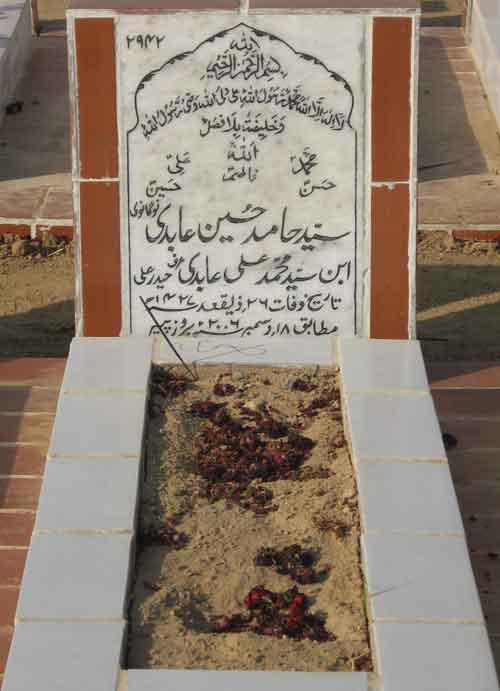 ۲۹۴۲
یا اللہ
بسم اللہ الرحمن الرحیم
لا الہ الا اللہ محمد رسول اللہ علی ولی اللہ وصی رسول اللہ
وخلیفتہ بلا فصل
محمدؐ اللہ علیؑ
فاطمہؑ
حسنؑ حسینؑ
سید حامد حسین عابدی نوگانوی
ابن سید محمد علی عابدی عرف حیدر علی
تاریخ وفات ۲۶ ذیقعد ۱۴۲۷ھ
مطابق ۱۸ دسمبر ۲۰۰۶ء بروز پیر